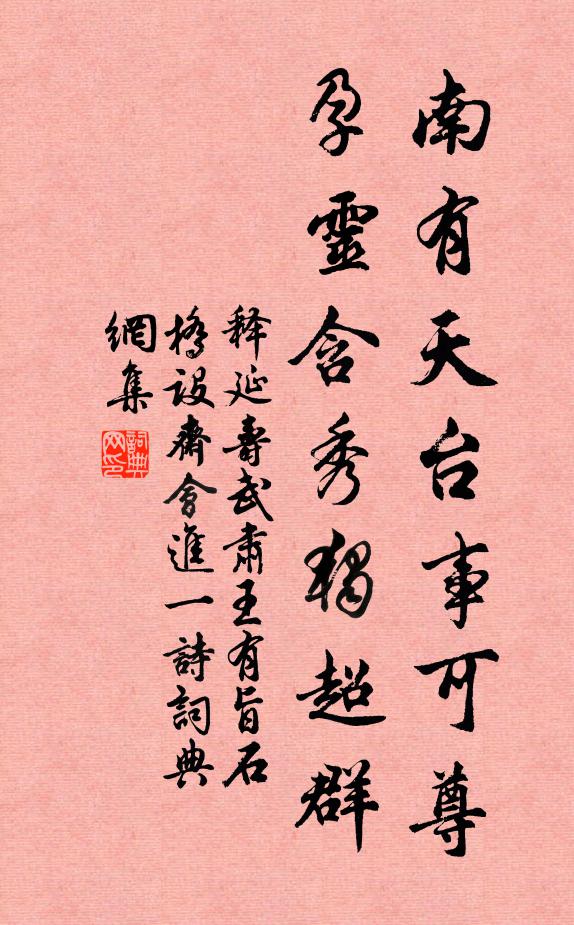 南有天台事可尊
孕靈含秀獨超群
释延壽武肅王有旨石
橋设齋會進一詩詞典
網集
詞典
网印